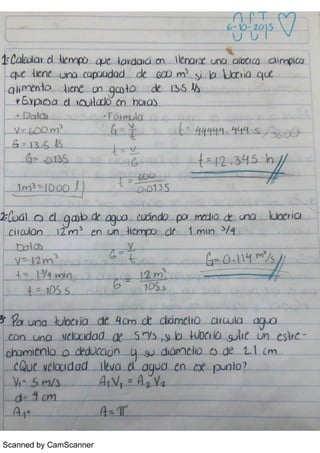 6-10-2015
1: Calcular el tiempo que tardará en llenarse una alberca olímpica
que tiene una capacidad de 600 m³ si la tubería que
alimenta tiene un gasto de 13.5 l/s
* Expresa el resultado en horas
- Datos - Formula
V=600m³ G = V/t t = 44444.444 s /3600
G=13.5 l/s t = V/G
G= .0135 t = 12.345 h //
1m³=1000 l t = 600/0.0135
2: Cuál es el gasto de agua cuándo por medio de una tubería
circulan 12m³ en un tiempo de 1 min 3/4
Datos G = V/t
V=12m³ G=0.114 m³/s //
t = 1 3/4 min G = 12m³/105s
t = 105 s
3 Por una tubería de 4cm de diámetro circula agua
con una velocidad de 5 m/s, si la tubería sufre un estre-
chamiento o deducción y su diámetro es de 2.1 cm
¿Que velocidad lleva el agua en ese punto?
V₁= 5 m/s A₁V₁ = A₂V₂
d= 4 cm
A₁= A=π
Scanned by CamScanner